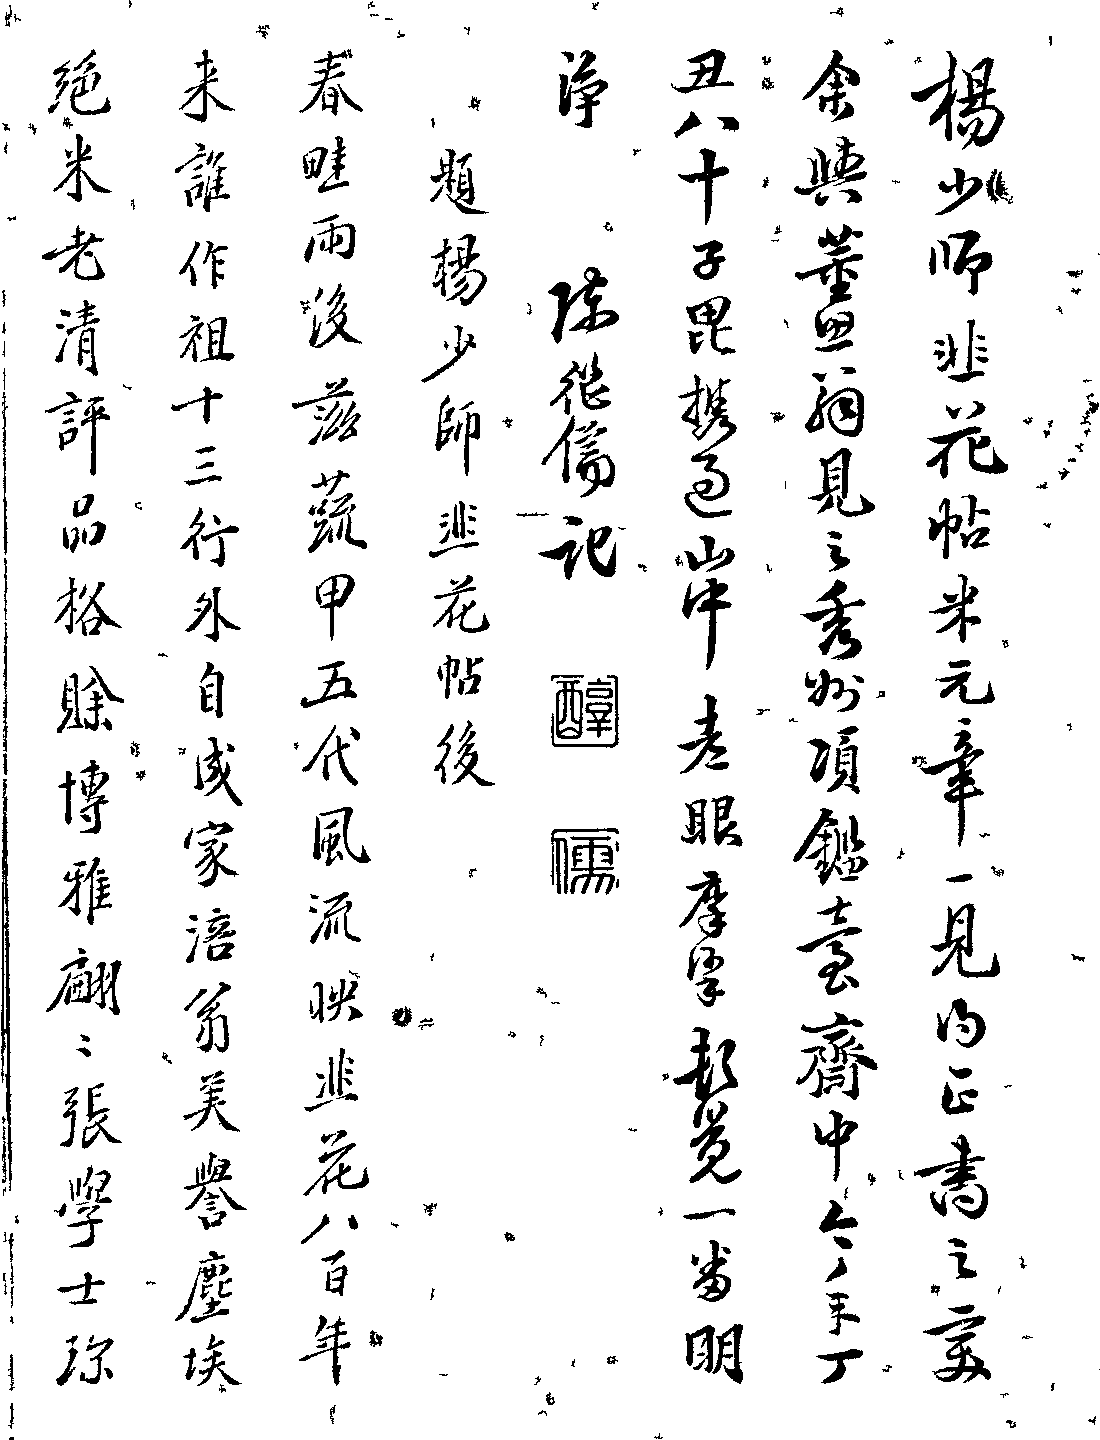 楊少師韭花帖米元章一見以正書之變
余與董思翁見之秀州項鑑臺齋中今年丁
丑八十子毘携過山中老眼摩挲頓覺一番明
淨　陳繼儒記
醇儒
題楊少師韭花帖後
春畦雨後茲蔬甲五代風流映韭花八百年
来誰作祖十三行外自成家涪翁美譽塵埃
絕米老清評品格賒博雅翩〻張學士珎